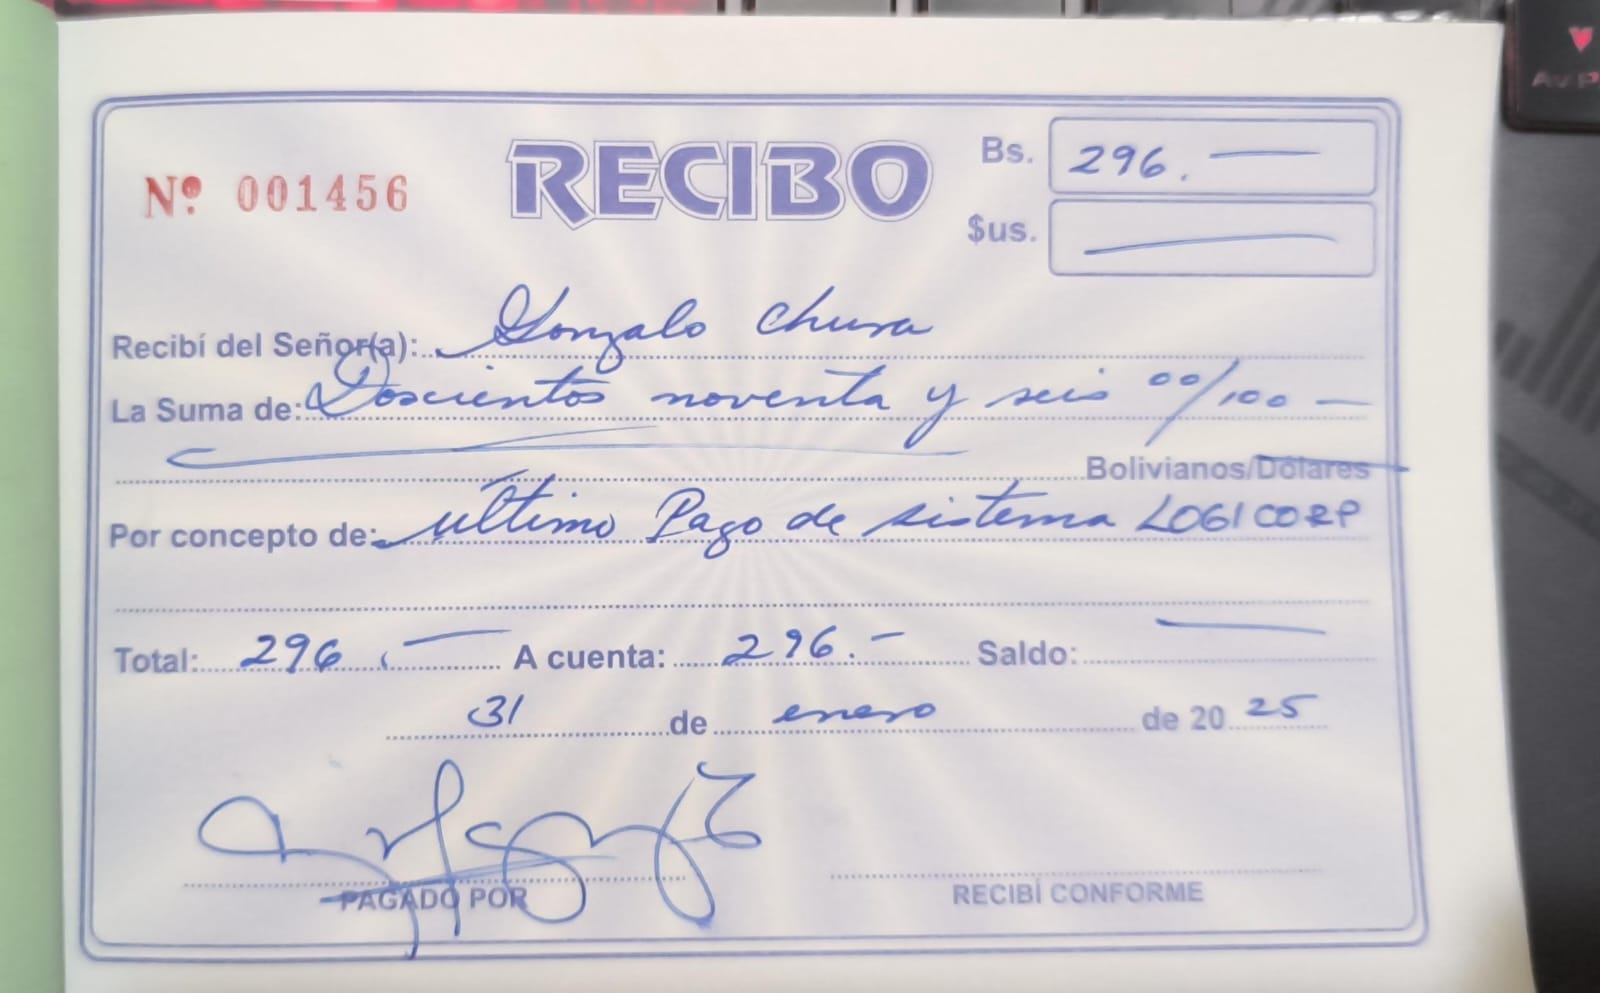 Nº 001456
RECIBO
Bs. 296.—
$us. —
Recibí del Señor(a): Gonzalo Chura
La Suma de: Doscientos noventa y seis 00/100 —
Bolivianos/Dólares
Por concepto de: último Pago de sistema LOGICORP
Total: 296.— A cuenta: 296.— Saldo: —
31 de enero de 20 25
PAGADO POR
RECIBÍ CONFORME